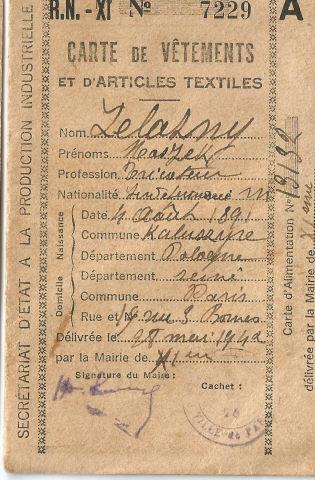 R.N. -XI Nº 7229 A
CARTE DE VÊTEMENTS
ET D'ARTICLES TEXTILES
Nom Zelasny
Prénoms
Profession Tricoteur
Nationalité
Naissance
Date 4 Août 1891
Commune Kaluszyne
Département Pologne
Domicile
Département seine
Commune Paris
Rue et Nº rue 3 Bornes
Délivrée le 28 mai 1942
par la Mairie de XI em
Signature du Maire :
Cachet :
VILLE de PAR
SECRÉTARIAT D'ÉTAT A LA PRODUCTION INDUSTRIELLE
Carte d'Alimentation Nº
délivrée par la Mairie de